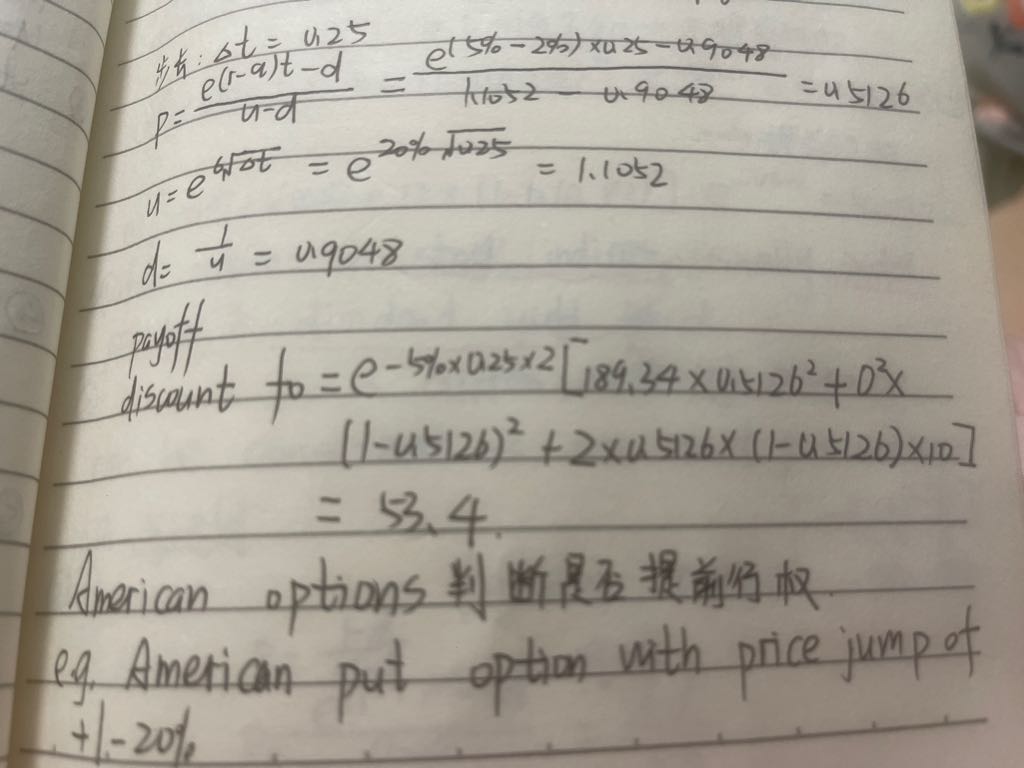 步长: Δt = 0.25
p = e(r-q)t - d / u-d = e(5%-2%)×0.25-0.9048 / 1.1052 - 0.9048 = 0.5126
u = e^σ√Δt = e^20%√0.25 = 1.1052
d = 1/u = 0.9048
payoff
discount f₀ = e^-5%×0.25×2 [189.34 × 0.5126² + 0 ×
(1-0.5126)² + 2×0.5126×(1-0.5126)×10]
= 53.4
American options 判断是否提前行权.
e.g. American put option with price jump of
+/-20%